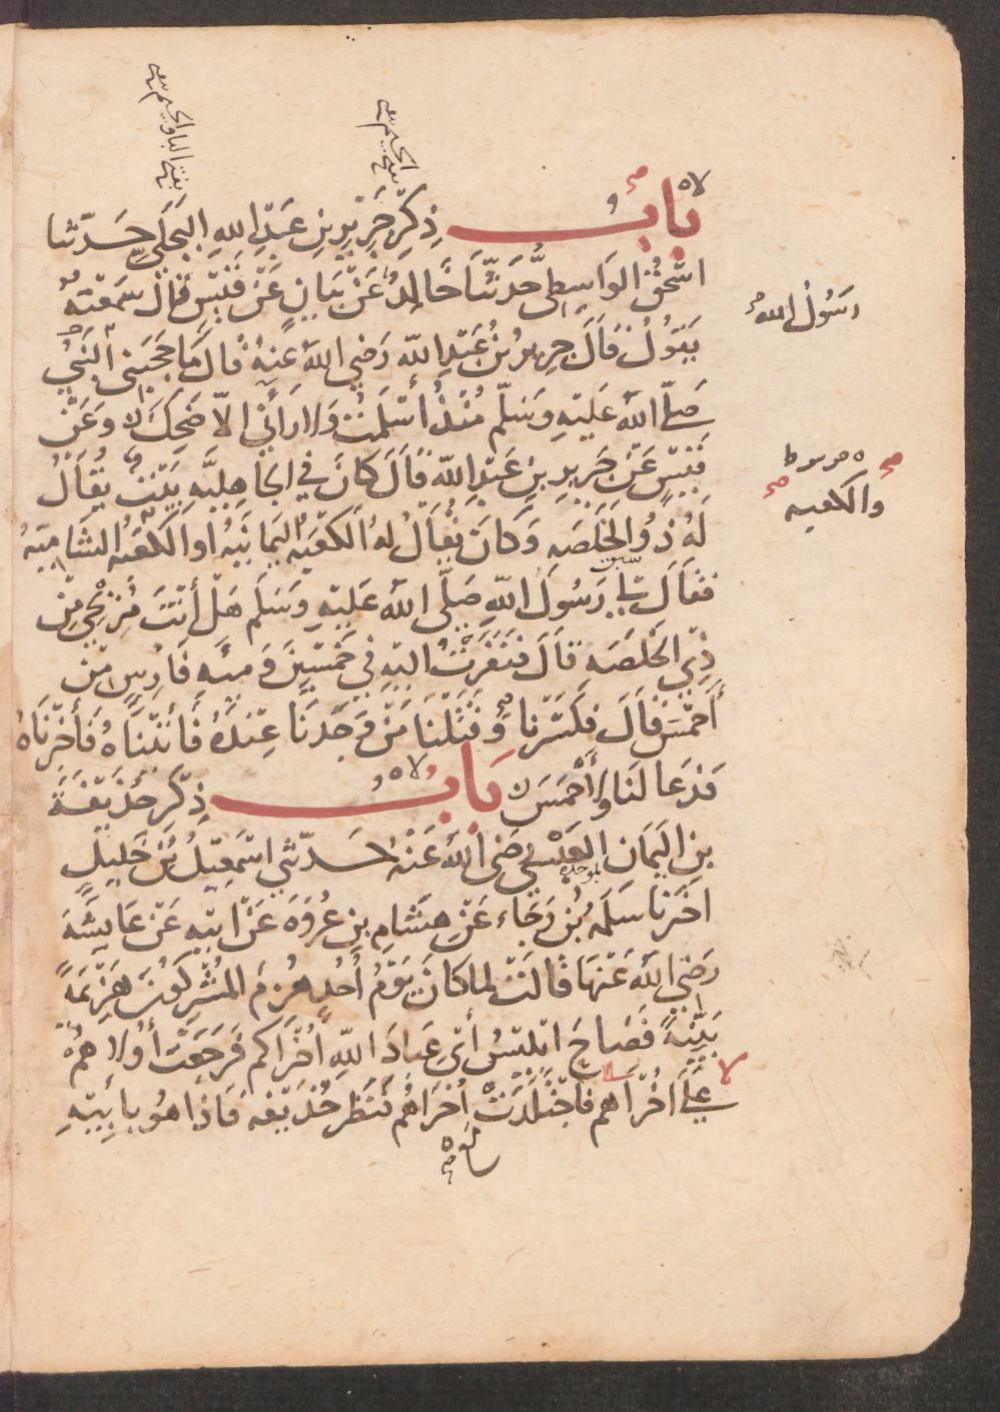 باب ذِكْرِ جَرِيرِ بنِ عَبْدِ اللهِ البَجَلِيِّ حَدّثنا
اسْحٰقُ الوَاسِطِىُّ حَدَّثَنَا خَالِدٌ عَنْ بَيَانٍ عَنْ قَيْسٍ قَالَ سَمِعْتُهُ
يَقُولُ قَالَ جَرِيرُ بْنُ عَبْدِ اللهِ رَضِي اللهُ عَنْهُ قَالَ مَا حَجَبَنِى النَّبِيُّ
صَلّى اللهُ عَلَيْهِ وَسَلّم مُنْذُ أَسْلَمْتُ وَلا رَآنِى الاّ ضَحِكَ وَعَنْ
قَيْسٍ عَنْ جَرِيرِ بنِ عَبْدِ اللهِ قَالَ كَانَ فِي الجَاهِلِيَّهِ بَيْتٌ يُقَالُ
لَهُ ذُو الخَلَصَهِ وَكَانَ يُقَالُ لَهُ الكَعْبَهُ اليَمَانِيَهُ اوِ الكَعْبَهُ الشَامِيَهُ
فقَالَ لِي رَسُولُ اللهِ صَلَّى اللهُ عَلَيْهِ وَسَلَم هَلْ أَنْتَ مُرِيحِي مِنْ
ذِي الخَلَصَهِ قَالَ فَنَفَرْتُ اليْهِ فِي خَمْسِينَ وَمِئَهِ فَارِسٍ مِنْ
أَحْمَسَ قَالَ فَكَسَرْنَا وَقَتَلْنَا مَنْ وَجَدْنَا عِنْدَهُ فَأَتَيْنَاهُ فَأَخْبَرْنَاهُ
فَدَعَا لَنَا وَلأَحْمَسَ باب ذِكْرِ حُذَيْفَةَ
بن اليَمَانِ العَبْسِيِّ رَضِي اللهُ عَنْهُ حَدّثني اسْمٰعِيلُ بْنُ خَلِيلٍ
اخْبَرَنَا سَلَمَهُ بْنُ رَجَاءٍ عَنْ هِشَامِ بنِ عُرْوَهَ عَنْ ابِيهِ عَنْ عَايِشَهَ
رَضِيَ اللهُ عَنْهَا قَالَتْ لمَا كَانَ يَوْمُ أُحُدٍ هُزِمَ المُشْرِكُونَ هَزِيمَةً
بَيِّنَةً فَصَاحَ ابْلِيسُ أَىْ عِبَادَ اللهِ أُخْرَاكم فَرَجَعَتْ أُولاهُمْ
عَلَى اُخْرَاهم فاجْتَلَدَتْ اُخْرَاهُم فَنَظَر حُذَيْفه فَاِذَا هُو بِأَبِيهِ
رَسُولُ الله
والكعبه